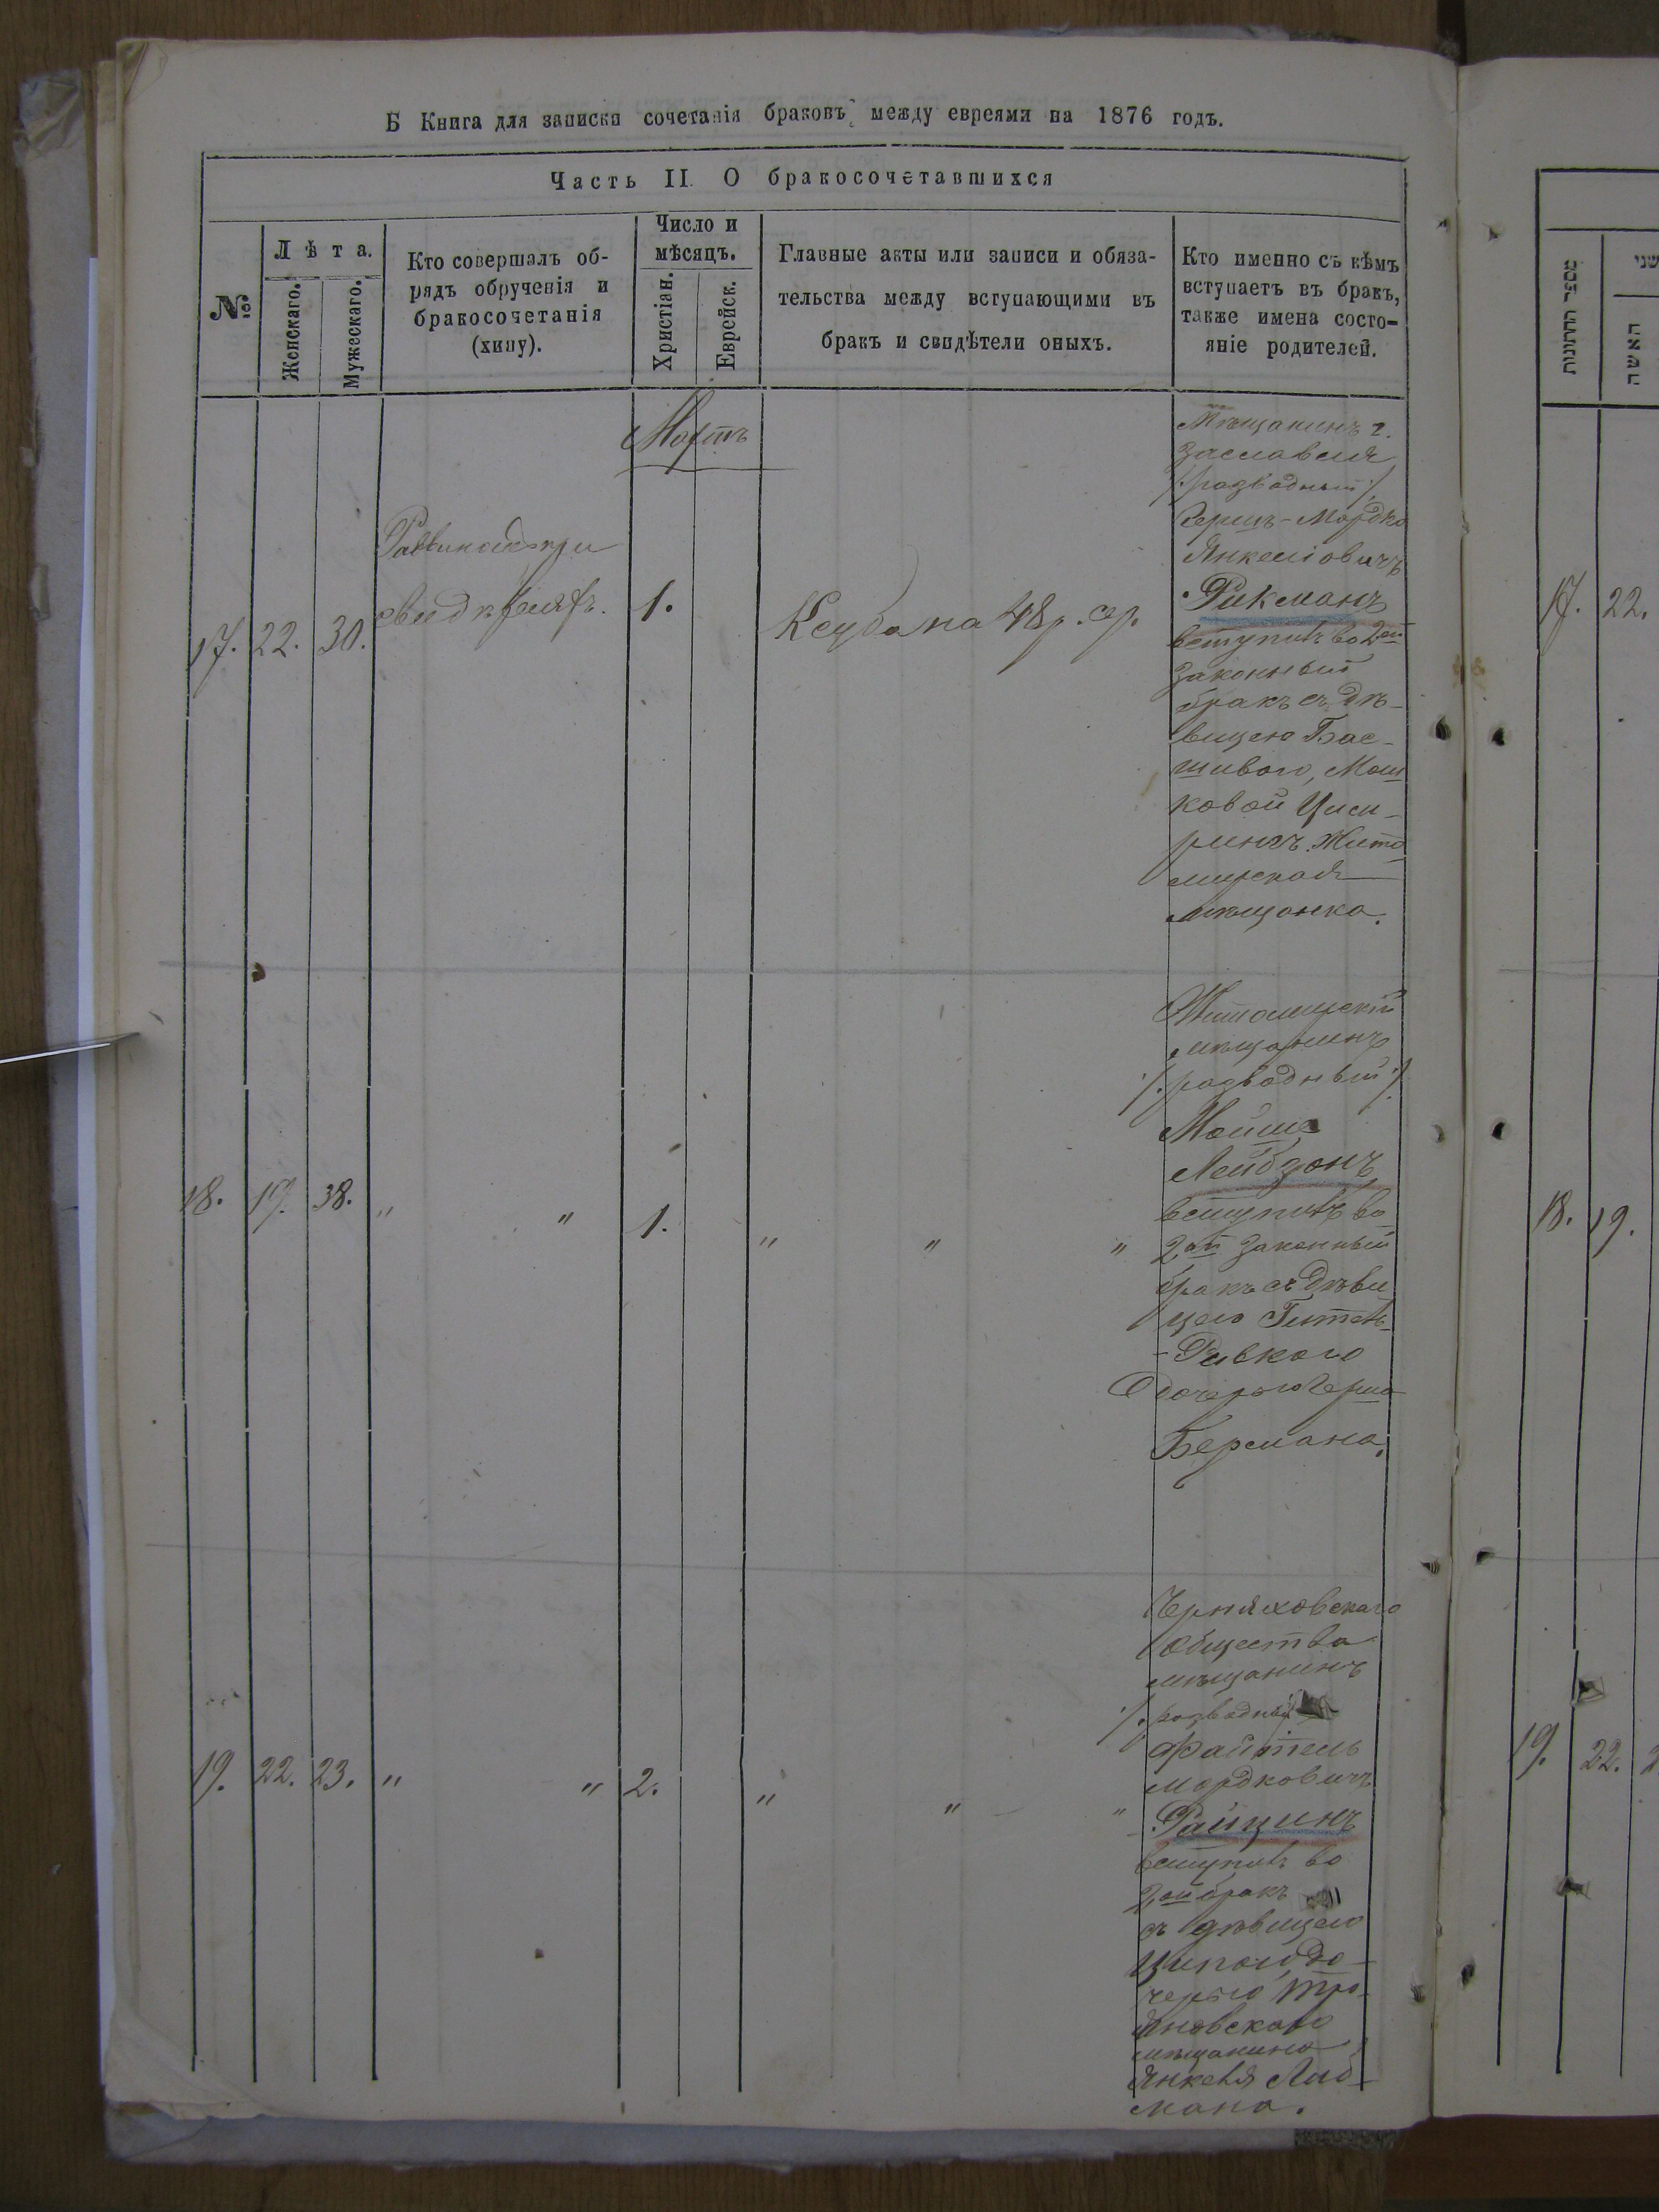 Б Книга для записки сочетанія браковъ между евреями на 1876 годъ.
Часть II. О бракосочетавшихся
№
Лѣта.
Женскаго.
Мужескаго.
Кто совершалъ об-
рядъ обрученія и
бракосочетанія
(хипу).
Число и
мѣсяцъ.
Христіан.
Еврейск.
Главные акты или записи и обяза-
тельства между вступающими въ
бракъ и свидѣтели оныхъ.
Кто именно съ кѣмъ
вступаетъ въ бракъ,
также имена состо-
яніе родителей.
Мартъ
17. 22. 30.
при
свидѣтеляхъ.
1.
Ксуба на 48 р. сер.
Мѣщанинъ г.
Заславля
/:разводный:/
Гершъ-Мордко
Янкеліовичъ
Рикманъ
вступилъ во 2ой
законный
бракъ съ дѣ-
вицею Бас-
шивою, Мош
ковой Цин-
ринъ. Жито
мирская
мѣщанка.
18. 19. 38. " " 1. " " "
Житомирскій
мѣщанинъ
/:разводный:/
Мойше
Лейбзонъ
вступилъ во
2ой законный
бракъ съ дѣви
цею Гитель
-Ривкою
дочерью Герша
Бермана.
19. 22. 23. " " 2. " " "
Черняховскаго
общества
мѣщанинъ
/:разводный
Файтель
Мордковичъ
Райцинъ
вступилъ во
2ой бракъ
съ дѣвицею
Ципою до-
черью Тро-
яновскаго
мѣщанина
Янкеля Либ-
мана.
מספר החתונות
שני
האשה
17. 22.
18. 19.
19. 22. 2